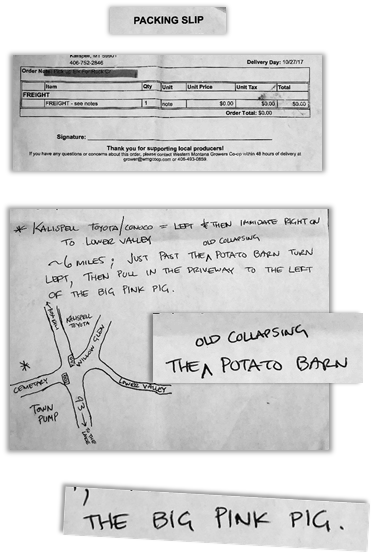 PACKING SLIP
Kalispell, MT 59901
406-752-2846
Delivery Day: 10/27/17
Order Note:
Item Qty Unit Unit Price Unit Tax Total
FREIGHT
FREIGHT - see notes 1 note $0.00 $0.00 $0.00
Order Total: $0.00
Signature:
Thank you for supporting local producers!
If you have any questions or concerns about this order, please contact Western Montana Growers Co-op within 48 hours of delivery at
grower@wmgcoop.com or 406-493-0859.
* KALISPELL TOYOTA/CONOCO = LEFT * THEN IMMIDIATE RIGHT ON
TO LOWER VALLEY
OLD COLLAPSING
~6 MILES; JUST PAST THE ^ POTATO BARN TURN
LEFT, THEN PULL IN THE DRIVEWAY TO THE LEFT
OF THE BIG PINK PIG.
KALISPELL
TOYOTA
WILLOW GLEN
*
CEMETARY
LOWER VALLEY
TOWN
PUMP
93
TO THE
LAKE
OLD COLLAPSING
THE ^ POTATO BARN
THE BIG PINK PIG.